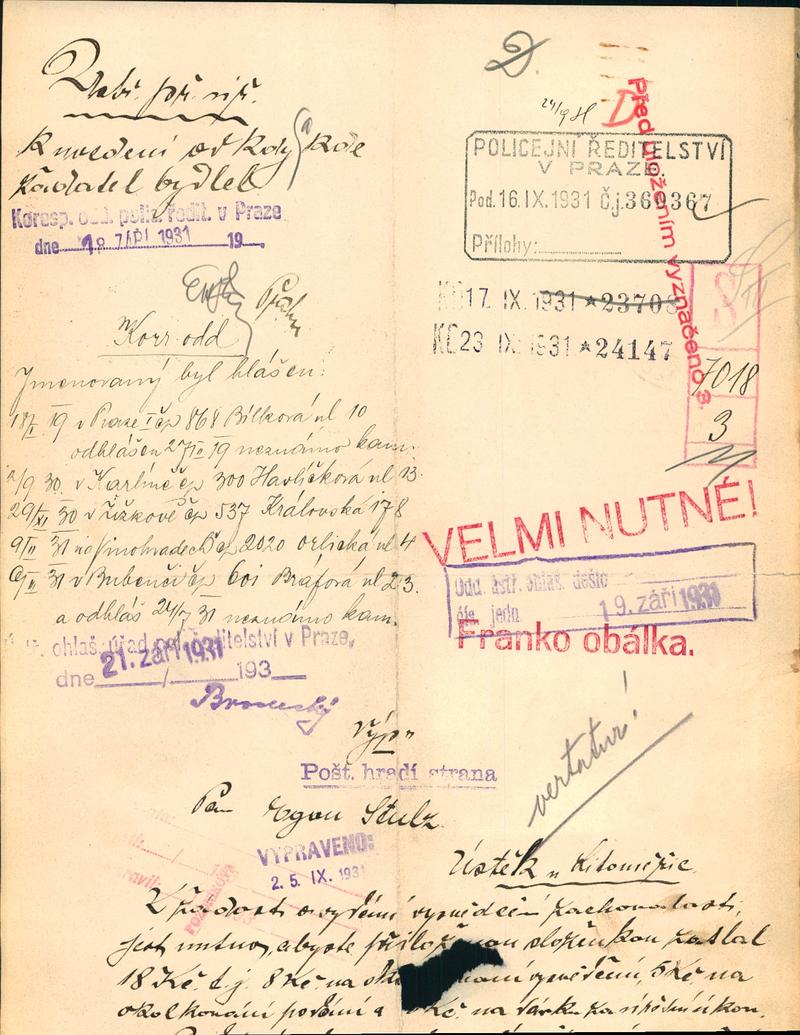 k uvedení od kdy a kde
žadatel bydlel
Koresp. odd. polic. ředit. v Praze
dne 18 ZÁŘÍ 1931 19
Korr. odd
Jmenovaný byl hlášen:
19 v Praze I čp 868 Bílková ul 10
odhlášen 27/ 19 neznámo kam.
30. v Karlíně čp 300 Havlíčkova ul 13.
29/XI 30 v Žižkově čp 537 Královská 178
9/II 31 na Vinohradech čp 2020 Orlická ul 4
31 v Bubenči čp 601 Bráfova ul 23.
a odhláš 24/ 31 neznámo kam.
ohlaš. úřad pol. ředitelství v Praze,
dne 21. září 1931 193
D.
D
POLICEJNÍ ŘEDITELSTVÍ
V PRAZE.
Pod. 16. IX. 1931 č.j. 360367
Přílohy:
Před uložením vyznačeno s.
KE 17. IX. 1931 ★23708
KE 23 IX. 1931 ★24147
7018
3
VELMI NUTNÉ!
Odd. ústř. ohláš. došlo
čís. jedn. 19. září 1931
Franko obálka.
vertatur!
Pošt. hradí strana
Pan Egon Stulz
VYPRAVENO:
25. IX. 1931
Úštěk u Litoměřic.
K žádosti o vydání vysvědčení zachovalosti,
jest nutno, abyste přiloženou složenkou zaslal
18 Kč t.j. 8 Kč na vysvědčení, 5 Kč na
okolkování podání a Kč na dávku za úřední úkon.